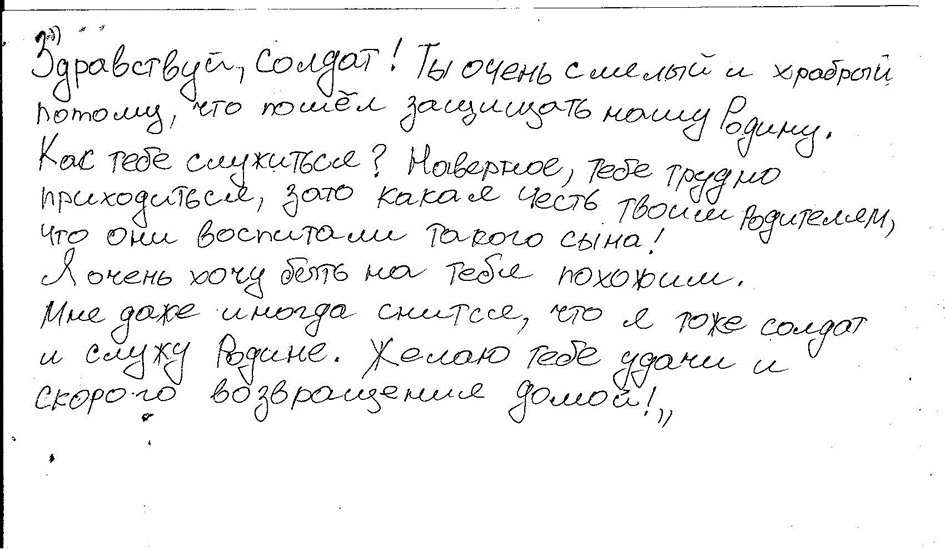 Здравствуй, солдат! Ты очень смелый и храбрый
потому, что пошёл защищать нашу Родину.
Как тебе служиться? Наверное, тебе трудно
приходиться, зато какая честь твоим родителям,
что они воспитали такого сына!
Я очень хочу быть на тебя похожим.
Мне даже иногда снится, что я тоже солдат
и служу Родине. Желаю тебе удачи и
скорого возвращения домой!„